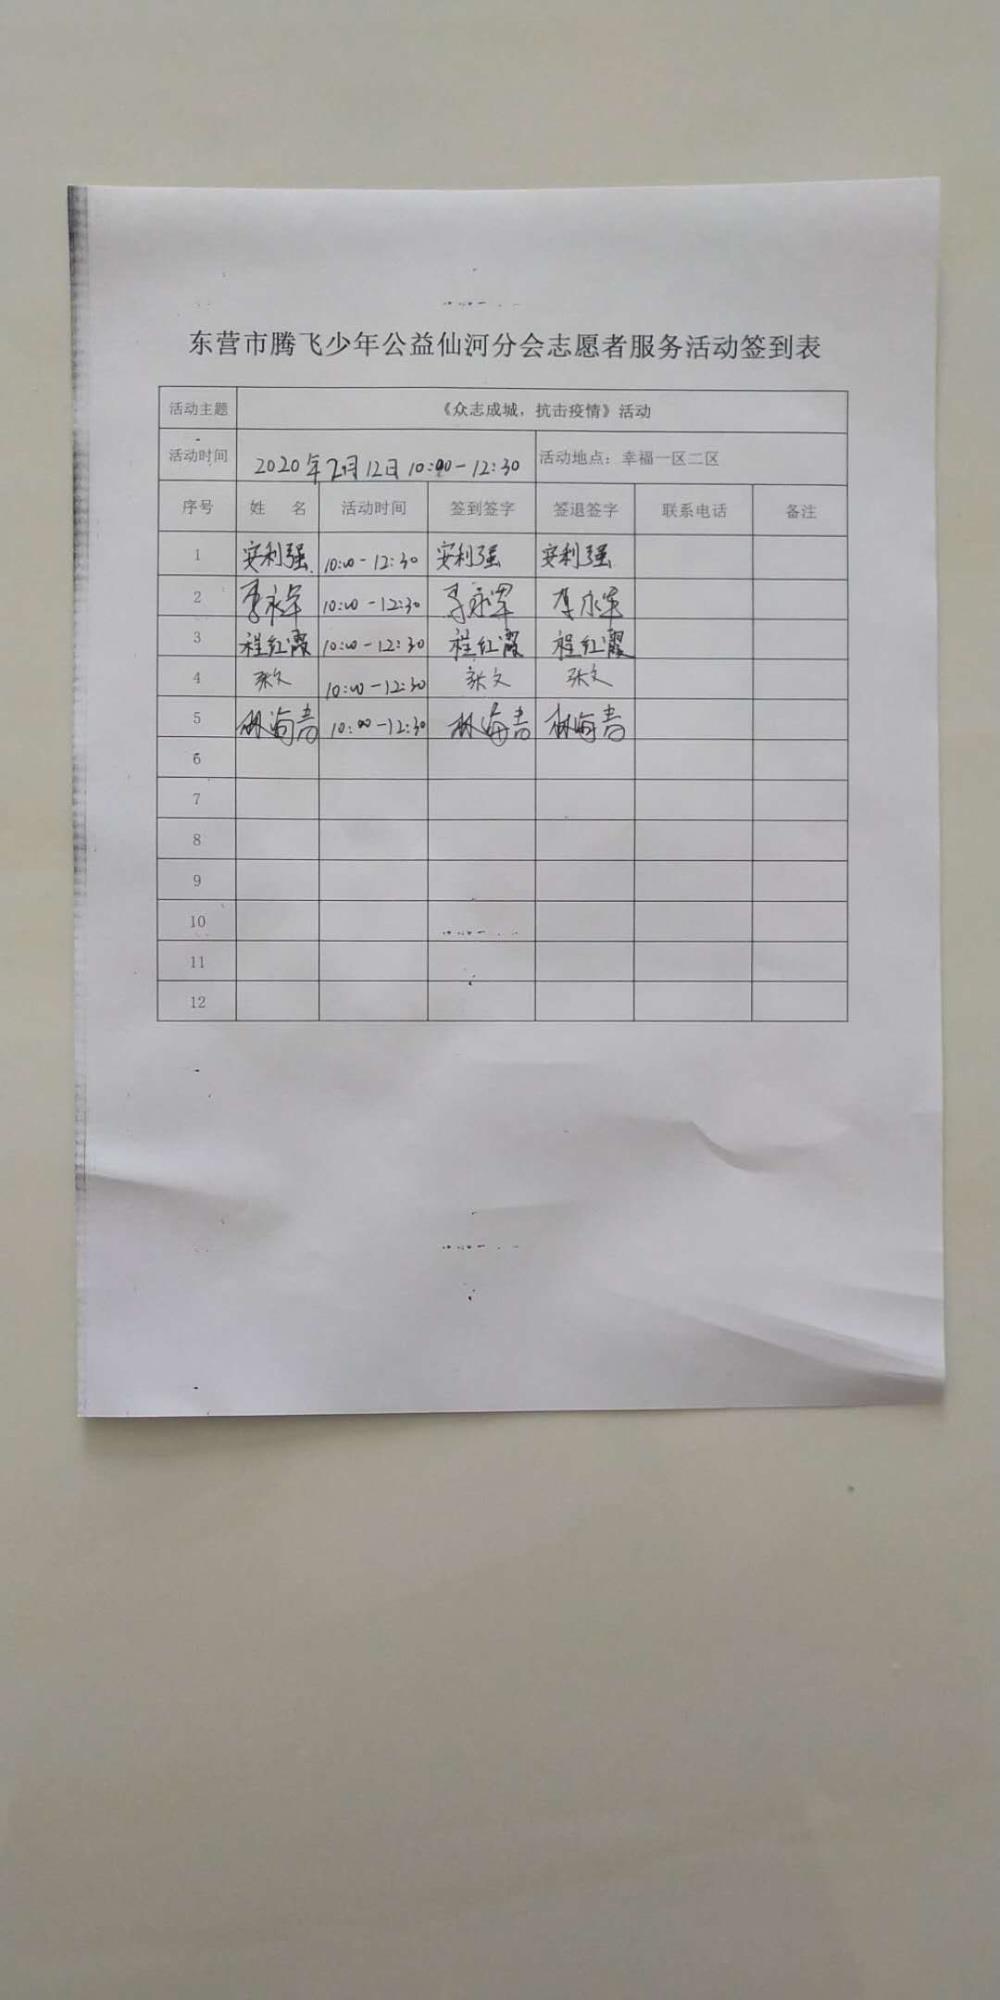 东营市腾飞少年公益仙河分会志愿者服务活动签到表
活动主题 《众志成城，抗击疫情》活动
活动时间 2020年2月12日 10:00-12:30 活动地点：幸福一区二区
序号 姓 名 活动时间 签到签字 签退签字 联系电话 备注
1 安利强 10:00-12:30 安利强 安利强
2 李永军 10:00-12:30 李永军 李永军
3 程红霞 10:00-12:30 程红霞 程红霞
4 张文 10:00-12:30 张文 张文
5 林海青 10:00-12:30 林海青 林海青
6
7
8
9
10
11
12